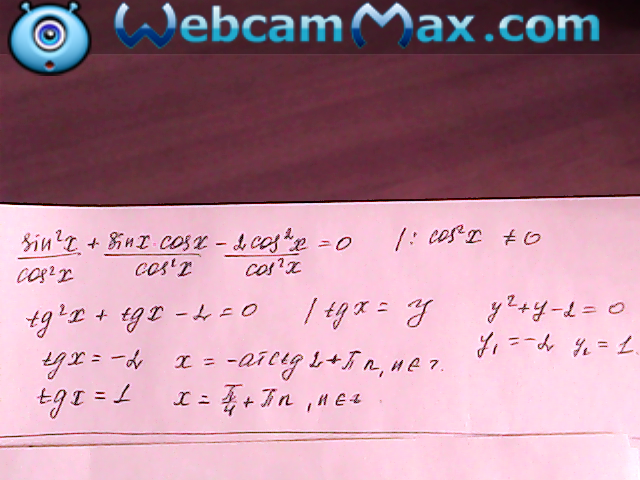 WebcamMax.com
sin²x/cos²x + sinx·cosx/cos²x - 2cos²x/cos²x = 0 /: cos²x ≠ 0
tg²x + tgx - 2 = 0 / tgx = y y² + y - 2 = 0
tgx = -2 x = -arctg2 + πn, n∈z. y₁ = -2 y₂ = 1
tgx = 1 x = π/4 + πn, n∈z